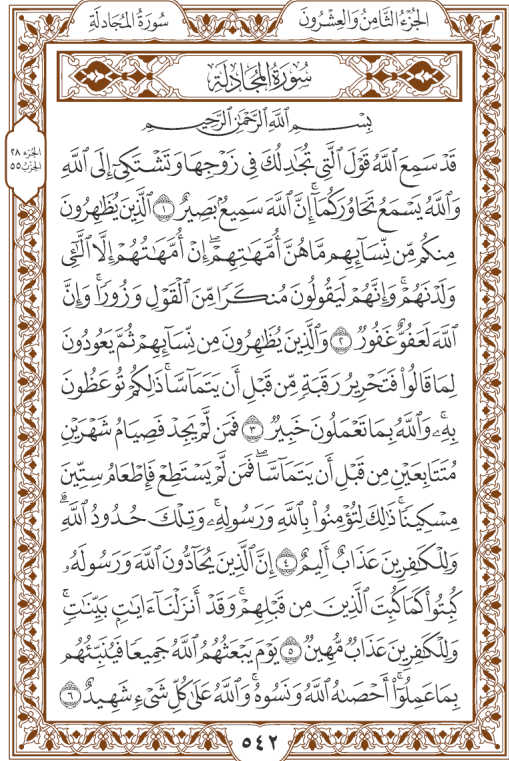 الجُزْءُ الثَّامِنُ وَالعِشْرُونَ
سُورَةُ المُجَادلَةِ
الجزء ٢٨
الحزب ٥٥
سُورَةُ المُجَادلَةِ
بِسْمِ ٱللَّهِ ٱلرَّحْمَٰنِ ٱلرَّحِيمِ
قَدْ سَمِعَ ٱللَّهُ قَوْلَ ٱلَّتِي تُجَٰدِلُكَ فِي زَوْجِهَا وَتَشْتَكِيٓ إِلَى ٱللَّهِ
وَٱللَّهُ يَسْمَعُ تَحَاوُرَكُمَآۚ إِنَّ ٱللَّهَ سَمِيعُۢ بَصِيرٌ ١ ٱلَّذِينَ يُظَٰهِرُونَ
مِنكُم مِّن نِّسَآئِهِم مَّا هُنَّ أُمَّهَٰتِهِمْۖ إِنْ أُمَّهَٰتُهُمْ إِلَّا ٱلَّٰٓـِٔي
وَلَدْنَهُمْۚ وَإِنَّهُمْ لَيَقُولُونَ مُنكَرًا مِّنَ ٱلْقَوْلِ وَزُورًاۚ وَإِنَّ
ٱللَّهَ لَعَفُوٌّ غَفُورٌ ٢ وَٱلَّذِينَ يُظَٰهِرُونَ مِن نِّسَآئِهِمْ ثُمَّ يَعُودُونَ
لِمَا قَالُواْ فَتَحْرِيرُ رَقَبَةٍ مِّن قَبْلِ أَن يَتَمَآسَّاۚ ذَٰلِكُمْ تُوعَظُونَ
بِهِۦۚ وَٱللَّهُ بِمَا تَعْمَلُونَ خَبِيرٌ ٣ فَمَن لَّمْ يَجِدْ فَصِيَامُ شَهْرَيْنِ
مُتَتَابِعَيْنِ مِن قَبْلِ أَن يَتَمَآسَّاۖ فَمَن لَّمْ يَسْتَطِعْ فَإِطْعَامُ سِتِّينَ
مِسْكِينًاۚ ذَٰلِكَ لِتُؤْمِنُواْ بِٱللَّهِ وَرَسُولِهِۦۚ وَتِلْكَ حُدُودُ ٱللَّهِۗ
وَلِلْكَٰفِرِينَ عَذَابٌ أَلِيمٌ ٤ إِنَّ ٱلَّذِينَ يُحَآدُّونَ ٱللَّهَ وَرَسُولَهُۥ
كُبِتُواْ كَمَا كُبِتَ ٱلَّذِينَ مِن قَبْلِهِمْۚ وَقَدْ أَنزَلْنَآ ءَايَٰتِۭ بَيِّنَٰتٍۚ
وَلِلْكَٰفِرِينَ عَذَابٌ مُّهِينٌ ٥ يَوْمَ يَبْعَثُهُمُ ٱللَّهُ جَمِيعًا فَيُنَبِّئُهُم
بِمَا عَمِلُوٓاْۚ أَحْصَىٰهُ ٱللَّهُ وَنَسُوهُۚ وَٱللَّهُ عَلَىٰ كُلِّ شَيْءٍ شَهِيدٌ ٦
٥٤٢